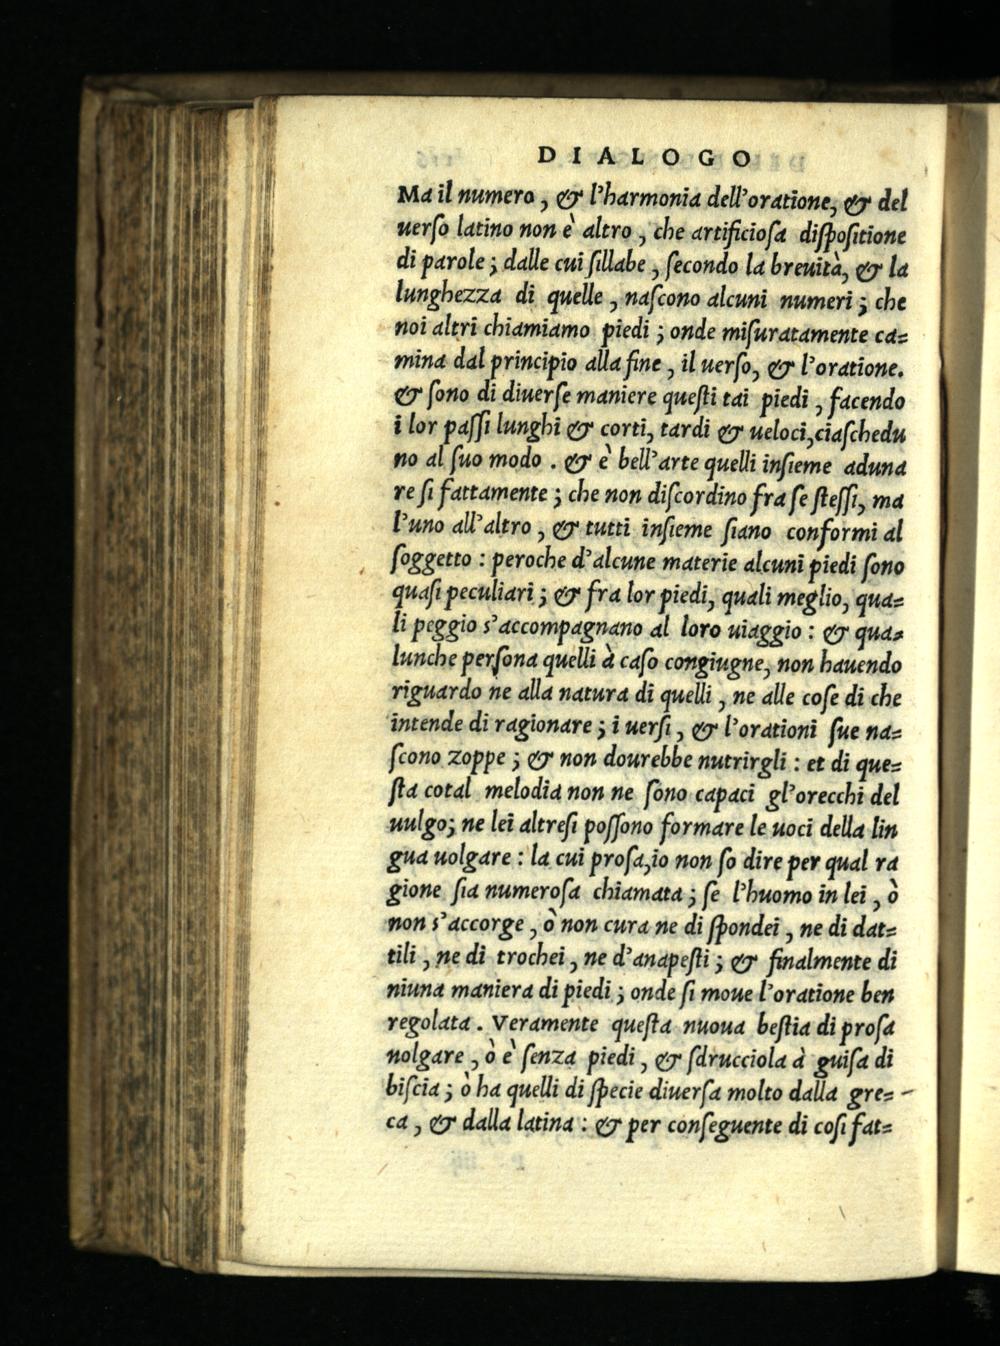 DIALOGO
Ma il numero, & l'harmonia dell'oratione, & del
uerſo latino non è altro, che artificioſa diſpoſitione
di parole; dalle cui ſillabe, ſecondo la breuità, & la
lunghezza di quelle, naſcono alcuni numeri; che
noi altri chiamiamo piedi; onde miſuratamente ca=
mina dal principio alla fine, il uerſo, & l'oratione.
& ſono di diuerſe maniere queſti tai piedi, facendo
i lor paſſi lunghi & corti, tardi & ueloci, ciaſchedu
no al ſuo modo. & è bell'arte quelli inſieme aduna
re ſi fattamente; che non diſcordino fra ſe ſteſſi, ma
l'uno all'altro, & tutti inſieme ſiano conformi al
ſoggetto: peroche d'alcune materie alcuni piedi ſono
quaſi peculiari; & fra lor piedi, quali meglio, qua=
li peggio s'accompagnano al loro uiaggio: & qua=
lunche perſona quelli à caſo congiugne, non hauendo
riguardo ne alla natura di quelli, ne alle coſe di che
intende di ragionare; i uerſi, & l'orationi ſue na=
ſcono zoppe; & non dourebbe nutrirgli: et di que=
ſta cotal melodia non ne ſono capaci gl'orecchi del
uulgo; ne lei altreſi poſſono formare le uoci della lin
gua uolgare: la cui proſa, io non ſo dire per qual ra
gione ſia numeroſa chiamata; ſe l'huomo in lei, ò
non s'accorge, ò non cura ne di ſpondei, ne di dat=
tili, ne di trochei, ne d'anapeſti; & finalmente di
niuna maniera di piedi; onde ſi moue l'oratione ben
regolata. Veramente queſta nuoua beſtia di proſa
nolgare, ò è ſenza piedi, & ſdrucciola à guiſa di
biſcia; ò ha quelli di ſpecie diuerſa molto dalla gre=
ca, & dalla latina: & per conſeguente di coſi fat=